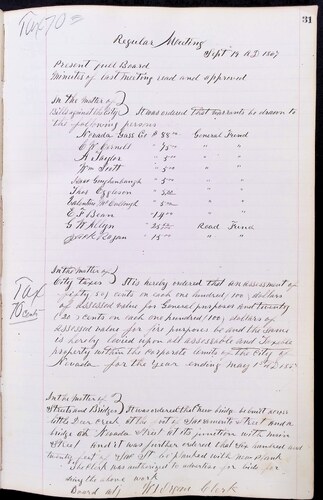 31
Tax 70 cts
Regular Meeting
Sept 14 A.D. 1867
Present full Board
Minutes of last meeting read and approved
In the matter of
Bills against the City } It was ordered that warrants be drawn to
the following persons
Nevada Gass Co $ 88 00 General Fund
C W " 75 00 " "
A Taylor " 5 00 " "
Wm Scott " 5 00 " "
" 5 00 " "
Thos Eggleson " 5 00 " "
Valentine McCullough " 5 00 " "
E F Bean " 14 00 " "
G W " 25 Road Fund
" 15 00 " "
Tax
70 cents
In the matter of
City taxes } It is hereby ordered that an assessment of
fifty (50) cents on each one hundred (100) dollars
of assessed value for General purposes and twenty
(20) cents on each one hundred (100) dollars of
assessed value for fire purposes be and the same
is hereby levied upon all assessable and Taxable
property within the corporate limits of the City of
Nevada for the year ending May 1st A.D. 186
In the matter of
Streets and Bridges } It was ordered that new bridge be built across
little Deer creek at the foot of Sacramento Street and a
bridge on Nevada Street at its junction with main
Street and it was further ordered that six hundred and
twenty feet of be planked with
The clerk was authorized to advertise for bids for
doing the above work
Board adj Clerk